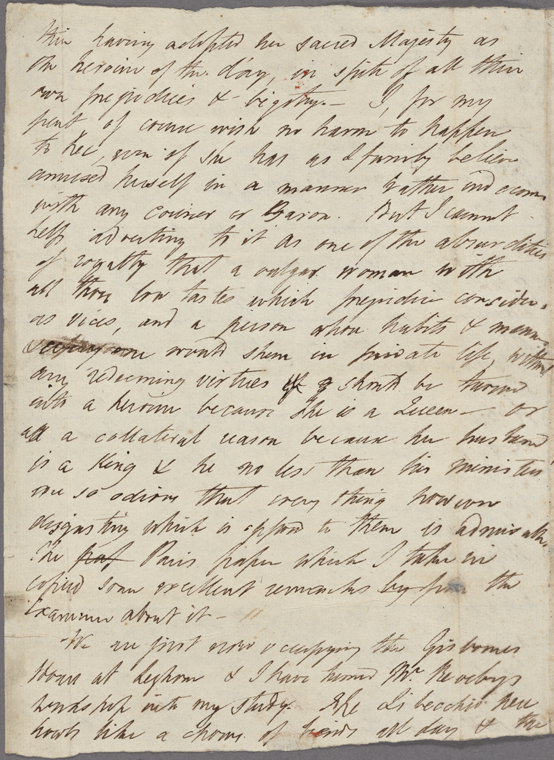 their having adopted her sacred Majesty as
the heroine of the day, in spite of all their
own prejudices & bigotry.— I, for my
part of course wish no harm to happen
to her, even if she has as I firmly believe
amused herself in a manner rather indecorous
with any courier or Baron. But I cannot
help adverting to it as one of the absurdities
of royalty that a vulgar woman with
all those low tastes which prejudice considers
as vices, and a person whose habits & manners
every one would shun in private life, without
any redeeming virtues should be turned
into a heroine because she is a Queen— or
as a collateral reason because her husband
is a King & he no less than his ministers
are so odious that every thing however
disgusting which is opposed to them is admirable
The Paris paper which I take in
copied some excellent remarks from the
Examiner about it—
We are just now occupying the Gisbornes
House at Leghorn & I have turned Mr Reveleys
workshop into my study. The Libecchio here
howls like a chorus of fiends all day & the